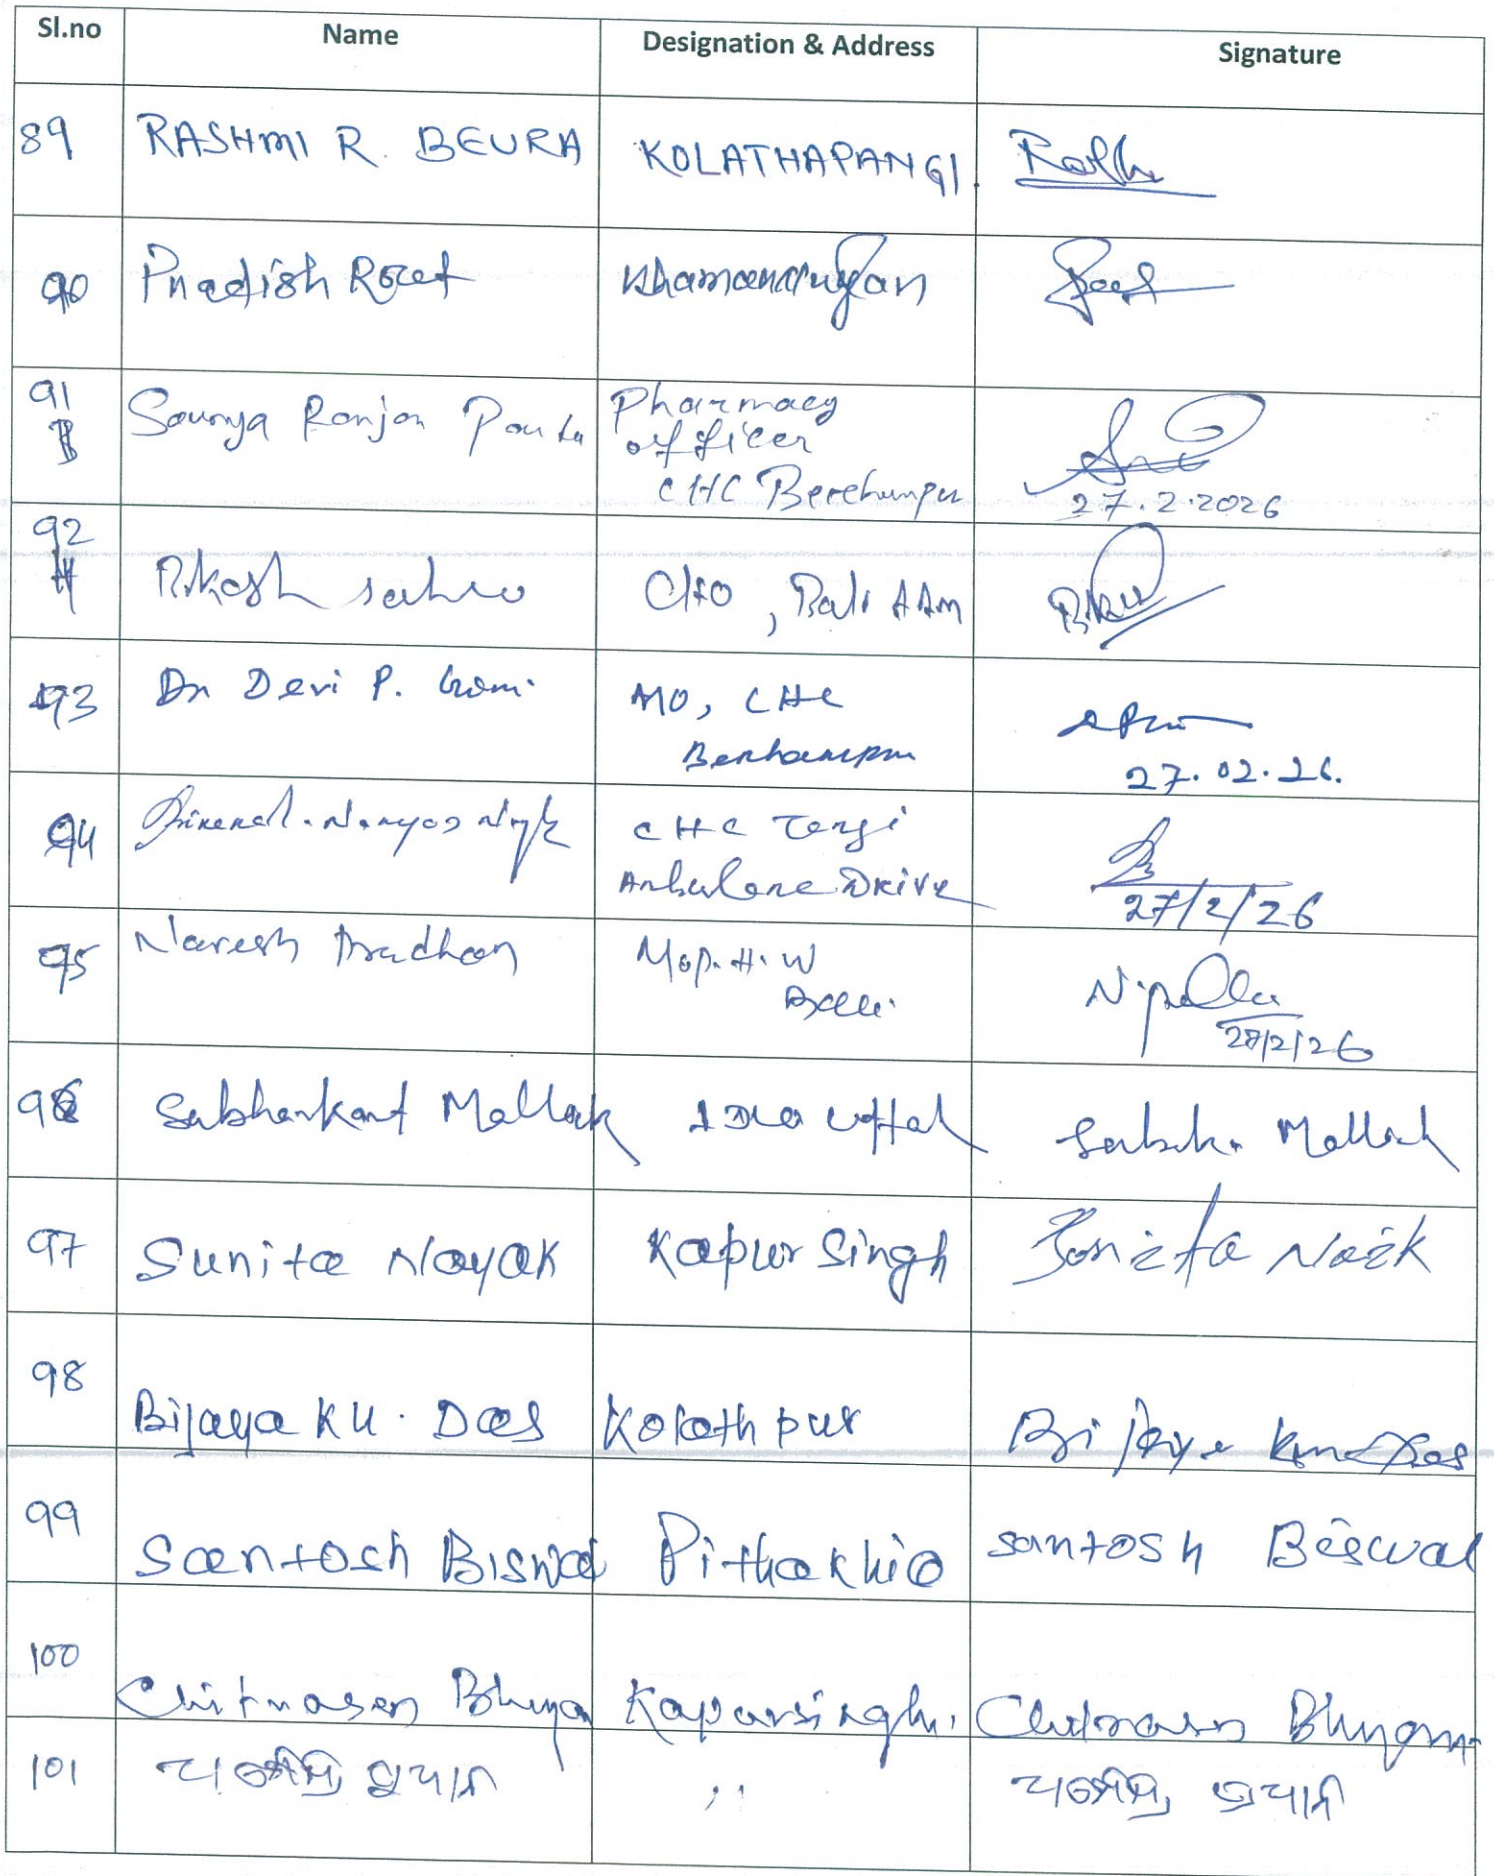 Sl.no Name Designation & Address Signature
89 RASHMI R. BEURA KOLATHAPANGI
90 Pradish Rout
91 Soumya Ranjan Panda Pharmacy
officer
CHC Berhampur
27.2.2026
92 Rikesh sahoo CHO, Bali AAM
93 Dr Devi P. MO, CHC
Berhampur
27.02.26.
94 CHC Tangi
Ambulance Drive
27/2/26
95 Naresh Pradhan M.P.H.W
Balli
27/2/26
96 Subhankant Mallick
97 Sunita Nayak Kapur Singh Sonita Naik
98 Bijaya KU. Das Kolathpur Bijaya Kumar Das
99 Santosh Biswal Pithakhia santosh Biswal
100 Chitrasen Bhuyan Kapursinghi,
101 ପ୍ରଧାନ ,, ପ୍ରଧାନ